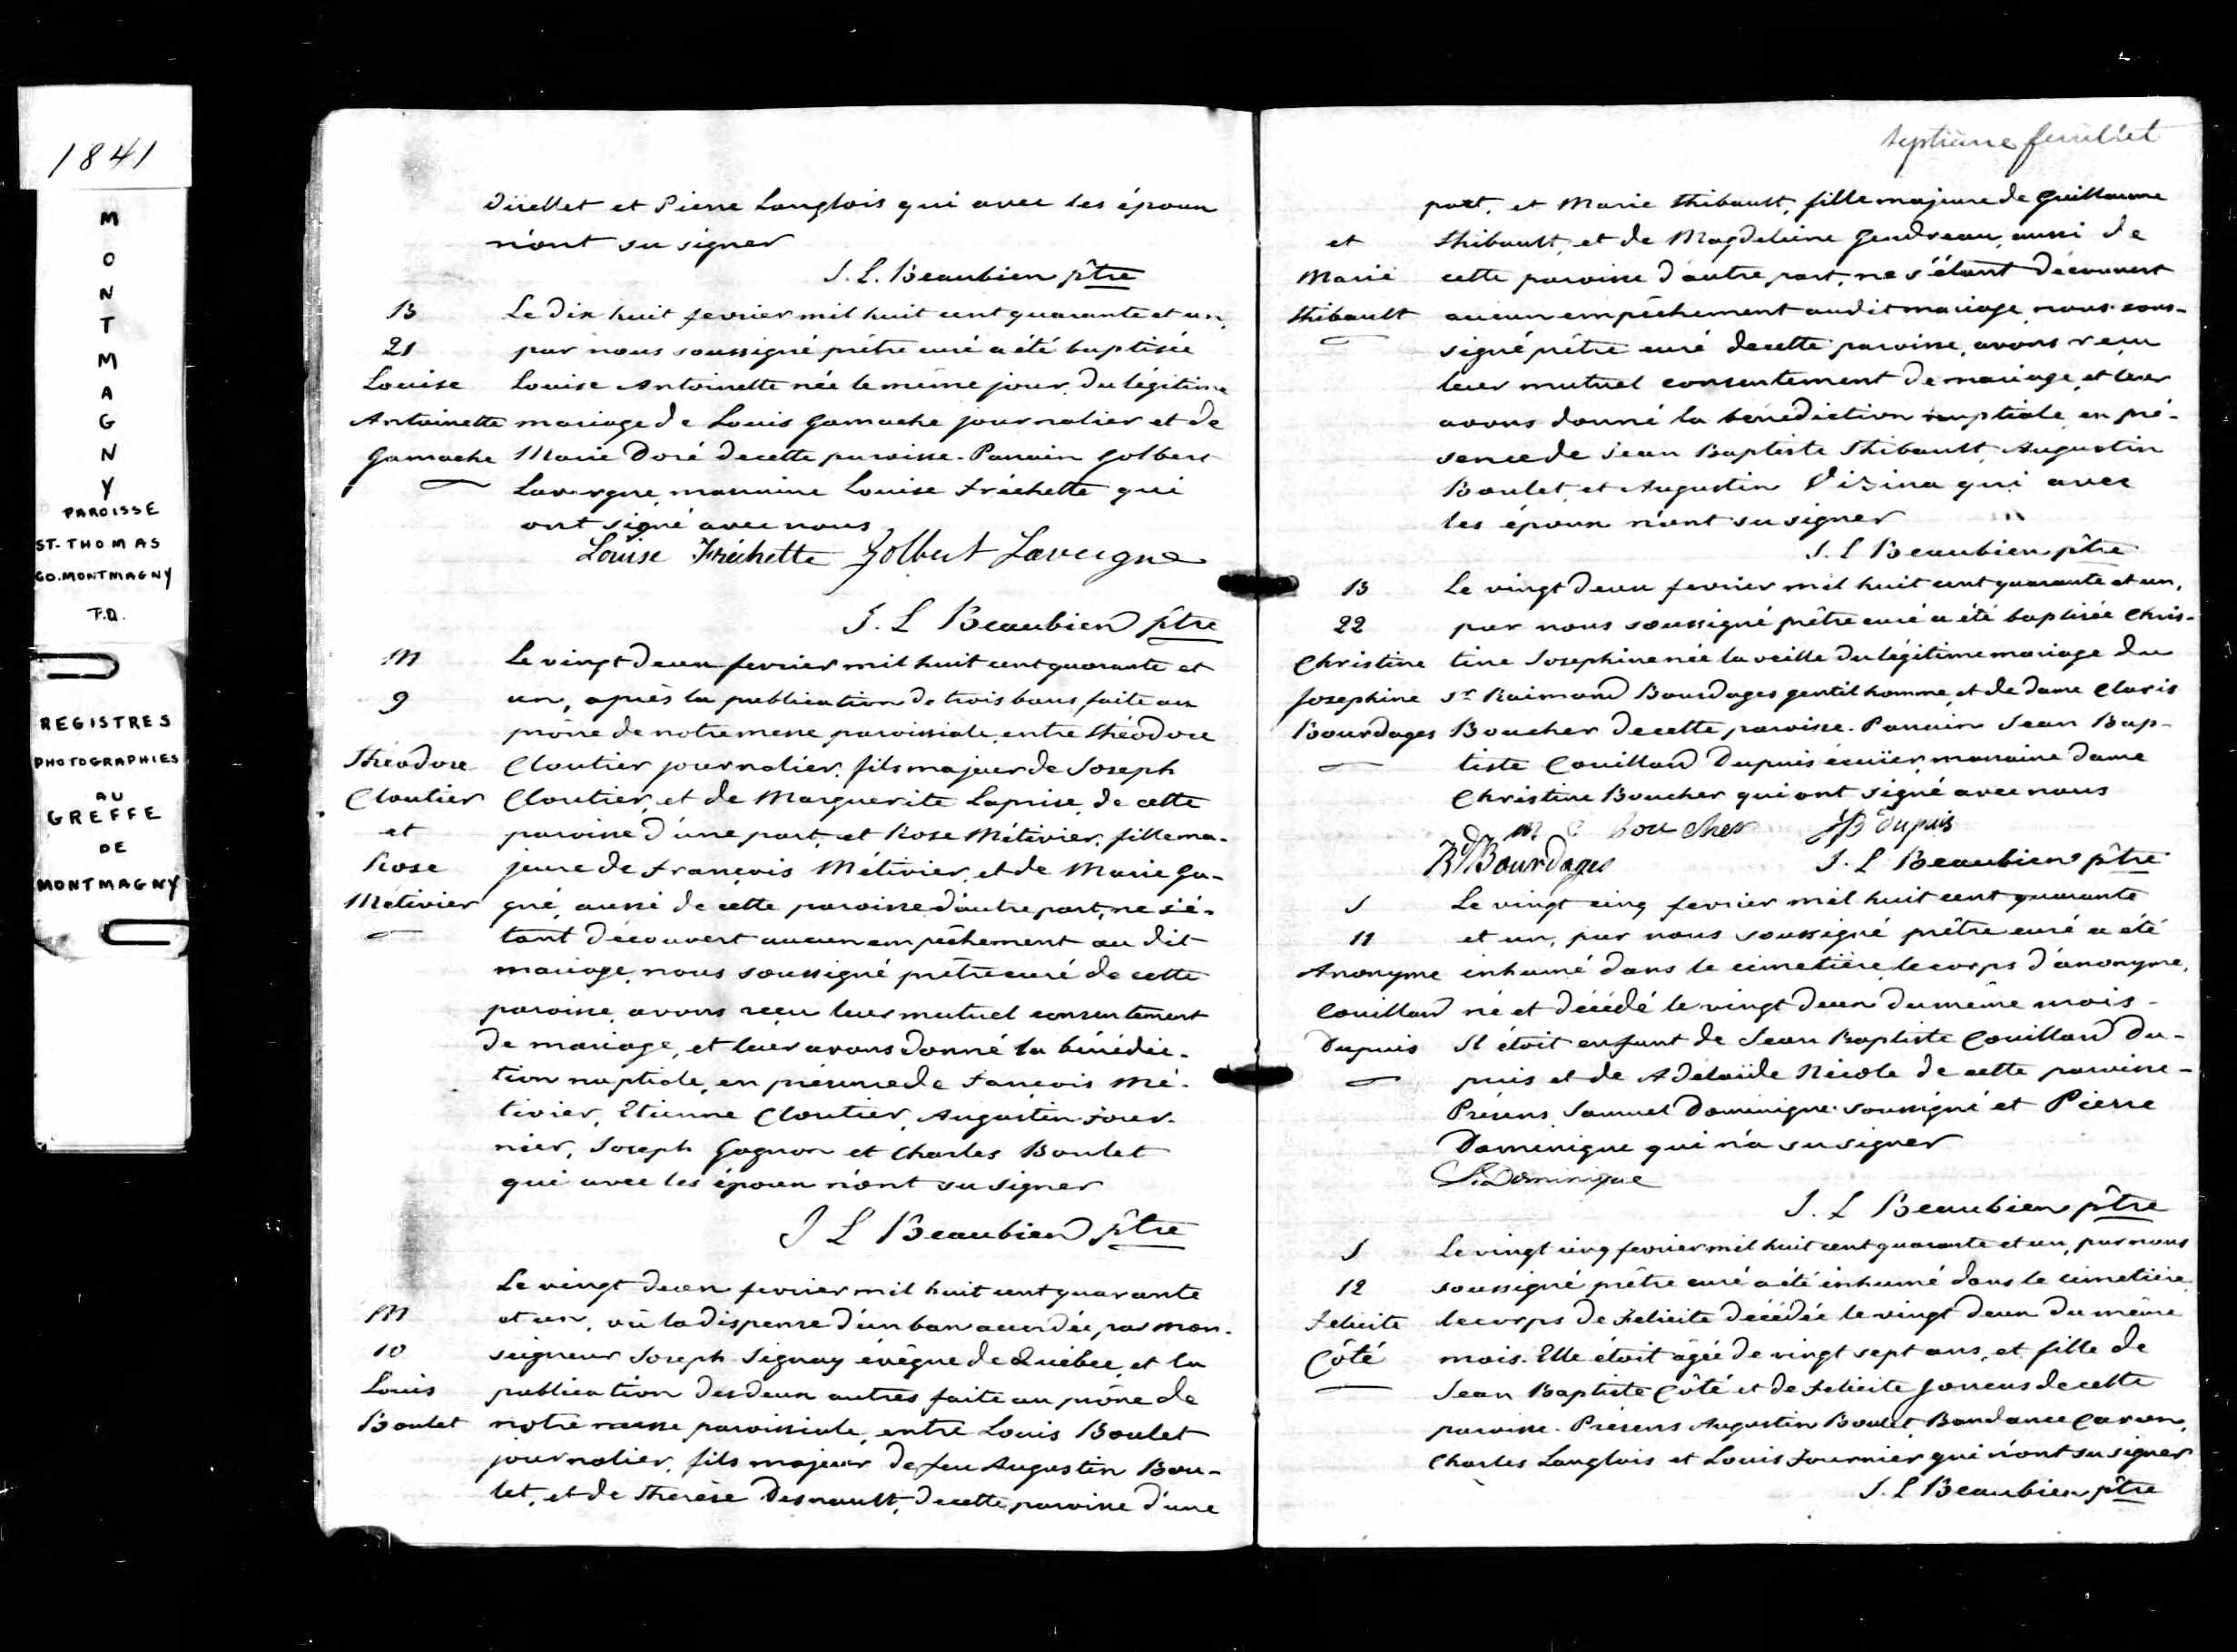 1841
MONTMAGNY
PAROISSE
ST-THOMAS
CO. MONTMAGNY
P.Q.
REGISTRES
PHOTOGRAPHIES
AU
GREFFE
DE
MONTMAGNY
Direllet et Pierre Langlois qui avec les époux
n'ont su signer
J. L. Beaubien ptre
B
21
Louise
Antoinette
Gamache
Le dix huit fevrier mil huit cent quarante et un,
par nous soussigné prêtre curé a été baptisée
Louise Antoinette née le même jour, du légitime
mariage de Louis Gamache journalier et de
Marie Doré de cette paroisse. Parrain Golbert
Lavergne, marraine Louise Fréchette qui
ont signé avec nous
Louise Fréchette Golbert Lavergne
J. L Beaubien ptre
M
9
Théodore
Cloutier
et
Rose
Métivier
Le vingt deux fevrier mil huit cent quarante et
un, après la publication de trois bans faite au
prône de notre messe paroissiale, entre Théodore
Cloutier journalier, fils majeur de Joseph
Cloutier, et de Marguerite Laprise, de cette
paroisse d'une part, et Rose Métivier, fille ma-
jeure de François Métivier, et de Marie Ga-
gné, aussi de cette paroisse d'autre part, ne s'é-
tant découvert aucun empêchement au dit
mariage, nous soussigné prêtre curé de cette
paroisse, avons reçu leur mutuel consentement
de mariage, et leur avons donné la bénédic-
tion nuptiale, en présence de Fançois Mé-
tivier, Etienne Cloutier, Augustin Four-
nier, Joseph Gagnon et Charles Boulet
qui avec les époux n'ont su signer
J L Beaubien ptre
M
10
Louis
Boulet
Le vingt deux fevrier mil huit cent quarante
et un, vû la dispense d'un ban accordée par Mon-
seigneur Joseph Signay évêque de Québec, et la
publication des deux autres faite au prône de
notre messe paroissiale, entre Louis Boulet
journalier, fils majeur de feu Augustin Bou-
let, et de Therèse Desnault, de cette paroisse d'une
septième feuillet
et
Marie
Thibault
part, et Marie Thibault, fille majeure de Guillaume
Thibault, et de Magdeleine Gendreau, aussi de
cette paroisse d'autre part, ne s'étant découvert
aucun empêchement audit mariage, nous sous-
signé prêtre curé de cette paroisse, avons reçu
leur mutuel consentement de mariage, et leur
avons donné la bénédiction nuptiale, en pré-
sence de Jean Baptiste Thibault, Augustin
Boulet, et Augustin Vizina qui avec
les époux n'ont su signer
J. L Beaubien ptre
B
22
Christine
Josephine
Bourdages
Le vingt deux fevrier mil huit cent quarante et un,
par nous soussigné prêtre curé a été baptisée Chris-
tine Josephine née la veille du légitime mariage du
Sr Raimond Bourdages gentilhomme, et de dame Claris
Boucher de cette paroisse. Parrain Jean Bap-
tiste Couillard Dupuis écuïer, marraine dame
Christine Boucher qui ont signé avec nous
M C Boucher JB Dupuis
R Bourdages J. L Beaubien ptre
S
11
Anonyme
Couillard
Dupuis
Le vingt cinq fevrier mil huit cent quarante
et un, par nous soussigné prêtre curé a été
inhumé dans le cimetière, le corps d'anonyme,
né et décédé le vingt deux du même mois -
Il étoit enfant de Jean Baptiste Couillard Du-
puis et de Adelaïde Nicole de cette paroisse -
Présens Samuel Dominique soussigné et Pierre
Dominique qui n'a su signer
S. Dominique
J. L Beaubien ptre
S
12
Felicite
Côté
Le vingt cinq fevrier mil huit cent quarante et un, par nous
soussigné prêtre curé a été inhumé dans le cimetière
le corps de Felicite décédée le vingt deux du même
mois. Elle étoit âgée de vingt sept ans, et fille de
Jean Baptiste Côté et de Felicite Joncas de cette
paroisse. Présens Augustin Boulet, Caron,
Charles Langlois et Louis Fournier qui n'ont su signer
J. L Beaubien ptre